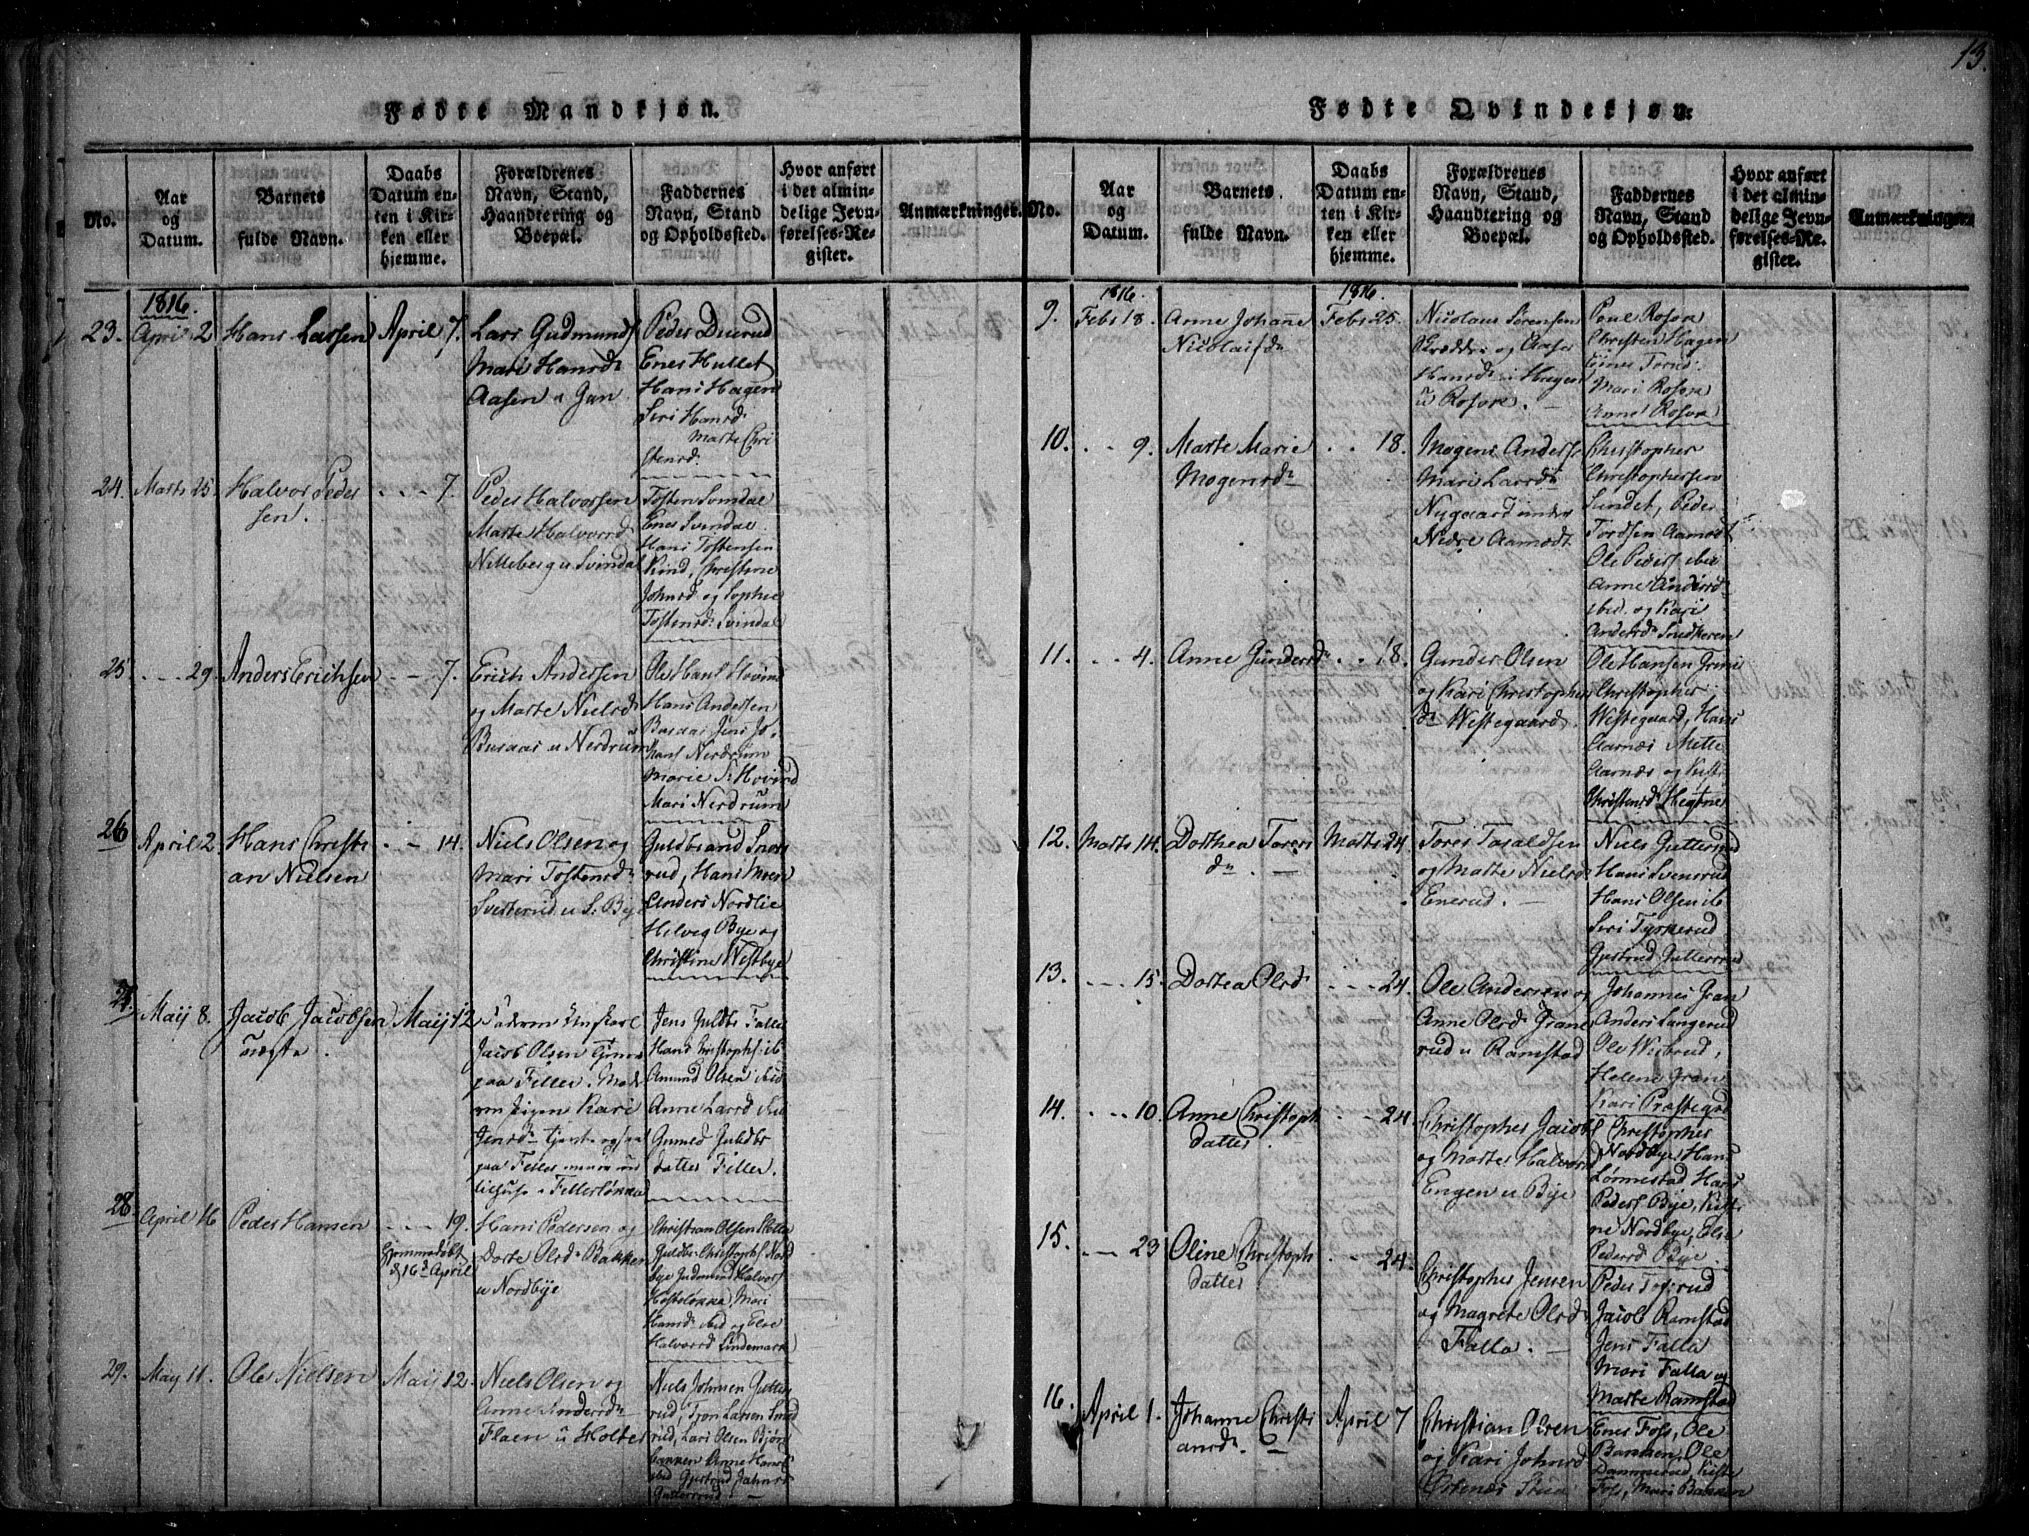 13.
Fødte Mandkjøn.
No.
Aar
og
Datum.
Barnets
fulde Navn.
Daabs
Datum en-
ten i Kir-
ken eller
hjemme.
Forældrenes
Navn, Stand,
Haandtering og
Boepæl.
Faddernes
Navn, Stand
og Opholdssted.
Hvor anført
i det almin-
delige Jevn-
førelses-Re-
gister.
Anmærkninger.
1816.
23. April 2
Hans Larsen
April 7.
Lars Gudmunds
Mari Hansd
Aasen u Grn
Peder Duerud
Enes Hullet
Hans Hagen
Siri Hansd
Marte Chri
stensd.
24. Marts 25.
Halvor Peder
sen.
- - - 7.
Peder Halvorsen
Marte Halvorsd
Nilleberg u Svindal
Tosten Svindal
Enes Svindal.
Hans Tostensen
Kind, Christine
Johnsd og Sophie
Tostensd Svindal
25 - - - 29.
Anders Erichsen
- - 7.
Erich Andersen
og Marte Nielsd
Busaas u Nerdrum
Ole Hans Hovind
Hans Andersen
Busaas Jens Jo-
hans Nerdrum
Marie S. Hovind
Mari Nerdrum
26 April 2.
Hans Christi
an Nielsen
- - 14.
Niels Olsen og
Mari Tostensd
Svesterud u S. Bye
Guldbrand Snors
rud, Hans Moen
Anders Nordlie
Helvig Bye og
Christine Westbye
27. Maij 8.
Jacob Jacobsen
uægte.
Maij 12
Faderen Ungkarl
Jacob Olsen tjener
paa Feller. Mode
ren Pigen Kari
Jensd tjente ogsaa
paa Feller
i Fellerløkka
Jens Guldbr Feller
Hans Christophs. ib.
Amund Olsen ibid
Anne Larsd ibid
Gunild Guldbr
datter Feller.
28. April 16
Peder Hansen
- - - 19.
Hjemmedøbt
d 16d April
Hans Pedersen og
Dorte Olsd Bakken
u Nordbye
Christian Olsen
Guldbr. Christophs Nord
bye Gudmund Halvors
Mari
Hansd ibid og Else
Halvorsd Lindemark
29. May 11.
Ole Nielsen
Maij 12.
Niels Olsen og
Anne Andersd
Flaen u Holter
Niels Johnsen Gutters
rud, Tron Larsen Smed
rud, Lars Olsen Bjørn
bakken Anne Hansd
ibid Gjertrud Johnsd
Guttersrud. —
Fødte Qvindekjøn.
No.
Aar
og
Datum.
Barnets
fulde Navn.
Daabs
Datum en-
ten i Kir-
ken eller
hjemme.
Forældrenes
Navn, Stand,
Haandtering og
Boepæl.
Faddernes
Navn, Stand
og Opholdssted.
Hvor anført
i det almin-
delige Jevn-
førelses-Re-
gister.
Anmærkninger.
1816.
1816.
9. Febr 18.
Anne Johanne
Nicolaisd
Febr 25.
Nicolaus Sørensen
Skrædder og Aase
Hansd i Hagen
u Rosora. —
Poul Rosora
Christen Hagen
Enes Torud.
Mari Rosora
Anne Rosora
10. - - 9.
Marte Marie
Mogensd
- - 18.
Mogens Anders
Mari Larsd
Nygaard under
Nedre Aamodt
Christopher
Christophersen
Sundet, Peder
Tordsen Aamodt
Ole Peders ibid
Anne Andersd
ibid. og Kari
Andersd Snedkeren
11. - - 4.
Anne Gundersd
- - 18.
Gunder Olsen
og Kari Christophers
d Westegaard.
Ole Hansen
Christopher
Westegaard, Hans
Aarnæs Mette
Aarnæs og Kisti
Christensd Hegtne
12. Marts 14.
Dorthea Tores
d. —
Marts 24
Tores Taraldsen
og Marte Nielsd
Enerud. —
Niels Guttersrud
Hans Svensrud
Hans Olsen ib.
Siri Tyskerud
Gjertrud Guttersrud
13. - - - 15.
Dortea Olsd
- - - 24.
Ole Andersen og
Anne Olsd Grane
rud u Ramstad
Johannes Gran
Anders Langerud
Ole Wiibrud,
Helene Gran
Kari Præstegrd
14. - - - 10.
Anne Christoph
datter.
- - 24.
Christopher Jacobs
og Marte Halvorsd
Engen u Bye
Christopher
Nordbye, Hans
Lønnestad Hans
Peders Bye, Kisti
ne Nordbye, Else
Pedersd Bye.
15. - - 23
Oline Christoph
datter
- - 24.
Christopher Jensen
og Magrete Olsd
Falla. —
Peder Togsrud
Jacob Ramstad
Jens Falla
Mari Falla og
Marte Ramstad
16. April 1.
Johanne Christi
ansd. —
April 7
Christian Olsen
og Kari Johnsd
Østenæs Stua
Enes Foss, Ole
Bakken, Ole
Dammerud, Kisti
Foss, Mari Bakken